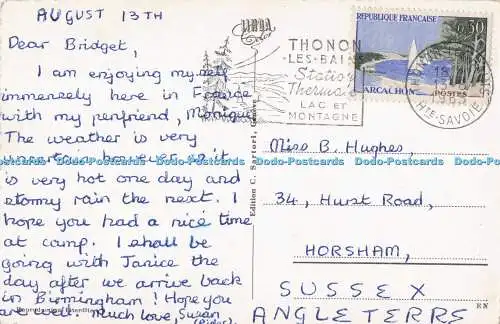 AUGUST 13TH
Dear Bridget,
I am enjoying myself
immensely here in France
with my penfriend, Monique.
The weather is very
however, as it
is very hot one day and
stormy rain the next. I
hope you had a nice time
at camp. I shall be
going with Janice the
day after we arrive back
in Birmingham! Hope you
are well. Much love, Susan
Edition C. Sartori, Genève
THONON
-LES-BAINS
Station
Thermale
LAC ET
MONTAGNE
REPUBLIQUE FRANCAISE
0,50
ARCACHON
POSTES
HTE-SAVOIE
Miss B. Hughes,
34, Hurst Road,
HORSHAM,
SUSSEX
ANGLETERRE
EN
Dodo-Postcards Dodo-Postcards Dodo-Postcards Dodo-Postcards